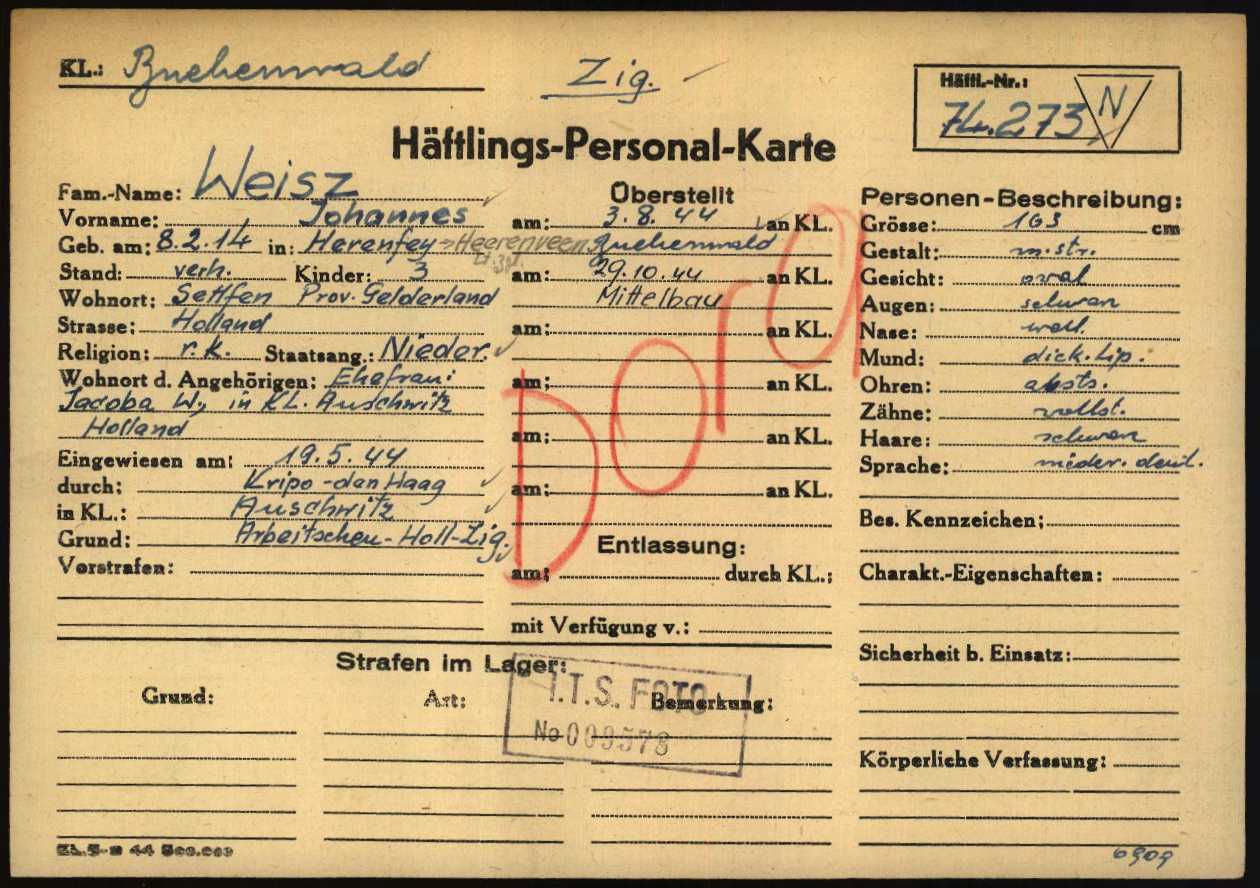 KL.: Buchenwald
Zig.
Häftl.-Nr.:
74.273 N
Häftlings-Personal-Karte
Fam.-Name: Weisz
Vorname: Johannes
Geb. am: 8.2.14 in: Herenfey → Heerenveen
Stand: verh. Kinder: 3
Wohnort: Settfen Prov. Gelderland
Strasse: Holland
Religion: r.k. Staatsang.: Nieder.
Wohnort d. Angehörigen: Ehefrau:
Jacoba W., in KL. Auschwitz
Holland
Eingewiesen am: 19.5.44
durch: Kripo-den Haag
in KL.: Auschwitz
Grund: Arbeitscheu-Holl-Zig.
Vorstrafen:
Überstellt
am: 3.8.44 an KL.
Buchenwald
am: 29.10.44 an KL.
Mittelbau
am: an KL.
am: an KL.
am: an KL.
am: an KL.
Dora
Entlassung:
am: durch KL.:
mit Verfügung v.:
Personen-Beschreibung:
Grösse: 163 cm
Gestalt: m.str.
Gesicht: oval
Augen: schwarz
Nase: well.
Mund: dick.Lip.
Ohren: absts.
Zähne: vollst.
Haare: schwarz
Sprache: nieder. deut.
Bes. Kennzeichen:
Charakt.-Eigenschaften:
Sicherheit b. Einsatz:
Körperliche Verfassung:
Strafen im Lager:
Grund: Art: Bemerkung:
I.T.S. FOTO
No 009578
6909